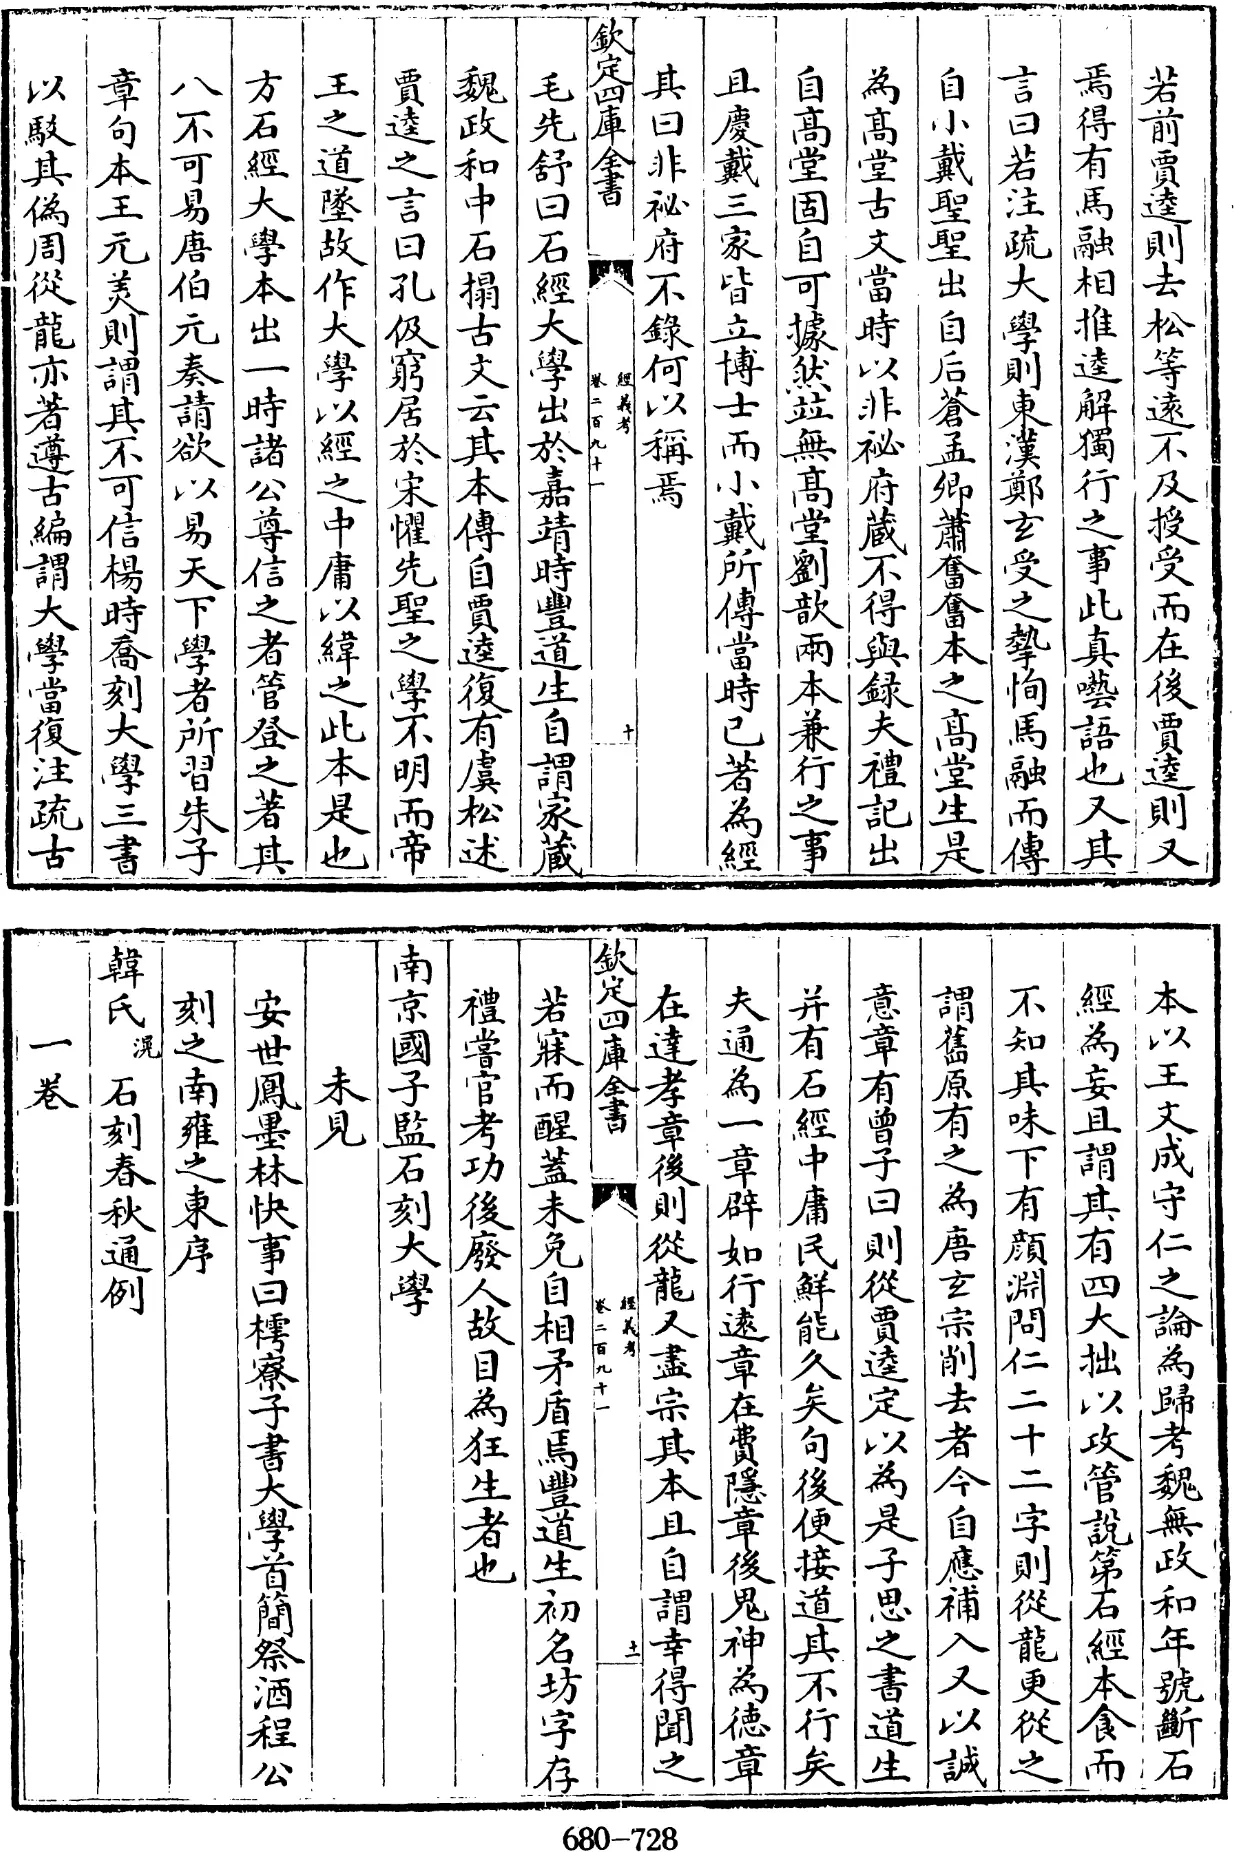 若前賈逵則去松等遠不及授受而在後賈逵則又
焉得有馬融相推逵解獨行之事此真囈語也又其
言曰若注疏大學則東漢鄭玄受之摯恂馬融而傳
自小戴聖聖出自后蒼孟卿蕭奮奮本之高堂生是
為高堂古文當時以非祕府藏不得與録夫禮記出
自高堂固自可據然並無高堂劉歆兩本兼行之事
且慶戴三家皆立博士而小戴所傳當時已著為經
其曰非祕府不錄何以稱焉
欽定四庫全書
經義考
卷二百九十一
十
毛先舒曰石經大學出於嘉靖時豐道生自謂家藏
魏政和中石搨古文云其本傳自賈逵復有虞松述
賈逵之言曰孔伋窮居於宋懼先聖之學不明而帝
王之道墜故作大學以經之中庸以緯之此本是也
方石經大學本出一時諸公尊信之者管登之著其
八不可易唐伯元奏請欲以易天下學者所習朱子
章句本王元美則謂其不可信楊時喬刻大學三書
以駁其偽周從龍亦著遵古編謂大學當復注疏古
本以王文成守仁之論為歸考魏無政和年號斷石
經為妄且謂其有四大拙以攻管說第石經本食而
不知其味下有顔淵問仁二十二字則從龍更從之
謂舊原有之為唐玄宗削去者今自應補入又以誠
意章有曾子曰則從賈逵定以為是子思之書道生
并有石經中庸民鮮能久矣句後便接道其不行矣
夫通為一章辟如行遠章在費隱章後鬼神為德章
在達孝章後則從龍又盡宗其本且自謂幸得聞之
欽定四庫全書
經義考
卷二百九十一
十一
若寐而醒蓋未免自相矛盾焉豐道生初名坊字存
禮嘗官考功後廢人故目為狂生者也
南京國子監石刻大學
未見
安世鳳墨林快事曰樗寮子書大學首簡祭酒程公
刻之南雍之東序
韓氏滉石刻春秋通例
一卷
680-728